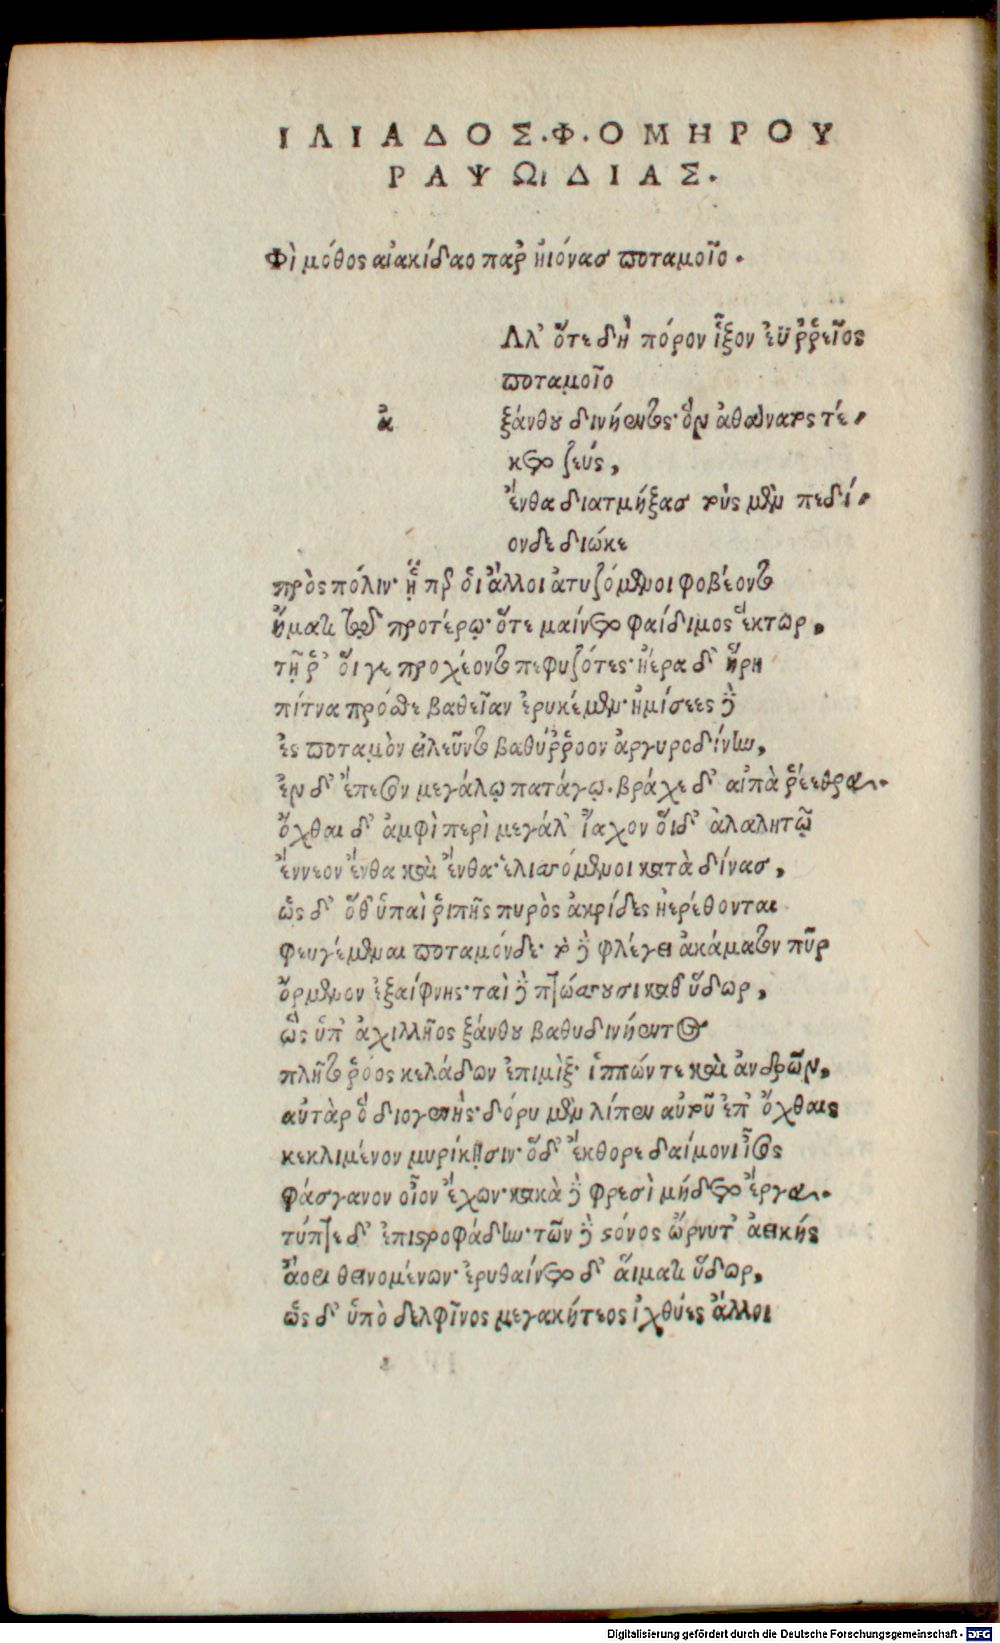 ΙΛΙΑΔΟΣ·Φ·ΟΜΗΡΟΥ
ΡΑΨΩιΔΙΑΣ.
Φὶ μόθος αἰακίδαο παρ ἠϊόνας ποταμοῖο.
Λλ' ὅτε δὴ πόρον ἷξον ἐϋῤῥεῖος
ποταμοῖο
ἀ
ξάνθου δινήεντος· ὃν ἀθάνατος τέ-
κετο ζεύς,
ἔνθα διατμήξας τοὺς μὲν πεδί-
ονδε δίωκε
πρὸς πόλιν· ᾗ περ ὁι ἄλλοι ἀτυζόμενοι φοβέοντο
ἤματι τῷ προτέρῳ· ὅτε μαίνετο φαίδιμος ἕκτωρ,
τῇ ῥ' ὅι γε προχέοντο πεφυζότες· ἠέρα δ' ἥρη
πίτνα πρόσθε βαθεῖαν ἐρυκέμεν· ἡμίσεες δὲ
ἐς ποταμὸν εἰλεῦντο βαθύῤῥοον ἀργυροδίνην,
ἐν δ' ἔπεσον μεγάλῳ πατάγῳ. βράχε δ' αἰπὰ ῥέεθρα.
ὄχθαι δ' ἀμφὶ περὶ μεγάλ' ἴαχον· ὅιδ' ἀλαλητῷ
ἔννεον ἔνθα καὶ ἔνθα· ἑλισσόμενοι κατὰ δίνας,
ὡς δ' ὅθ' ὑπαὶ ῥιπῆς πυρὸς ἀκρίδες ἠερέθονται
φευγέμεναι ποταμόνδε· τὸ δὲ φλέγει ἀκάματον πῦρ
ὄρμενον ἐξαίφνης· ταὶ δὲ πτώσσουσι καθ' ὕδωρ,
ὣς ὑπ' ἀχιλλῆος ξάνθου βαθυδινήεντος
πλῆτο ῥόος κελάδων ἐπιμὶξ· ἵππών τε καὶ ἀνδρῶν,
αὐτὰρ ὃ διογενὴς· δόρυ μὲν λίπεν αὐτοῦ ἐπ' ὄχθαις
κεκλιμένον μυρίκῃσιν· ὅδ' ἔκθορε δαίμονι ἶσος
φάσγανον οἶον ἔχων· κακὰ δὲ φρεσὶ μήδετο ἔργα.
τύπτε δ' ἐπιστροφάδην· τῶν δὲ στόνος ὤρνυτ' ἀεικής
ἄορι θεινομένων· ἐρυθαίνετο δ' αἵματι ὕδωρ,
ὡς δ' ὑπὸ δελφῖνος μεγακήτεος ἰχθύες ἄλλοι
Digitalisierung gefördert durch die Deutsche Forschungsgemeinschaft - DFG